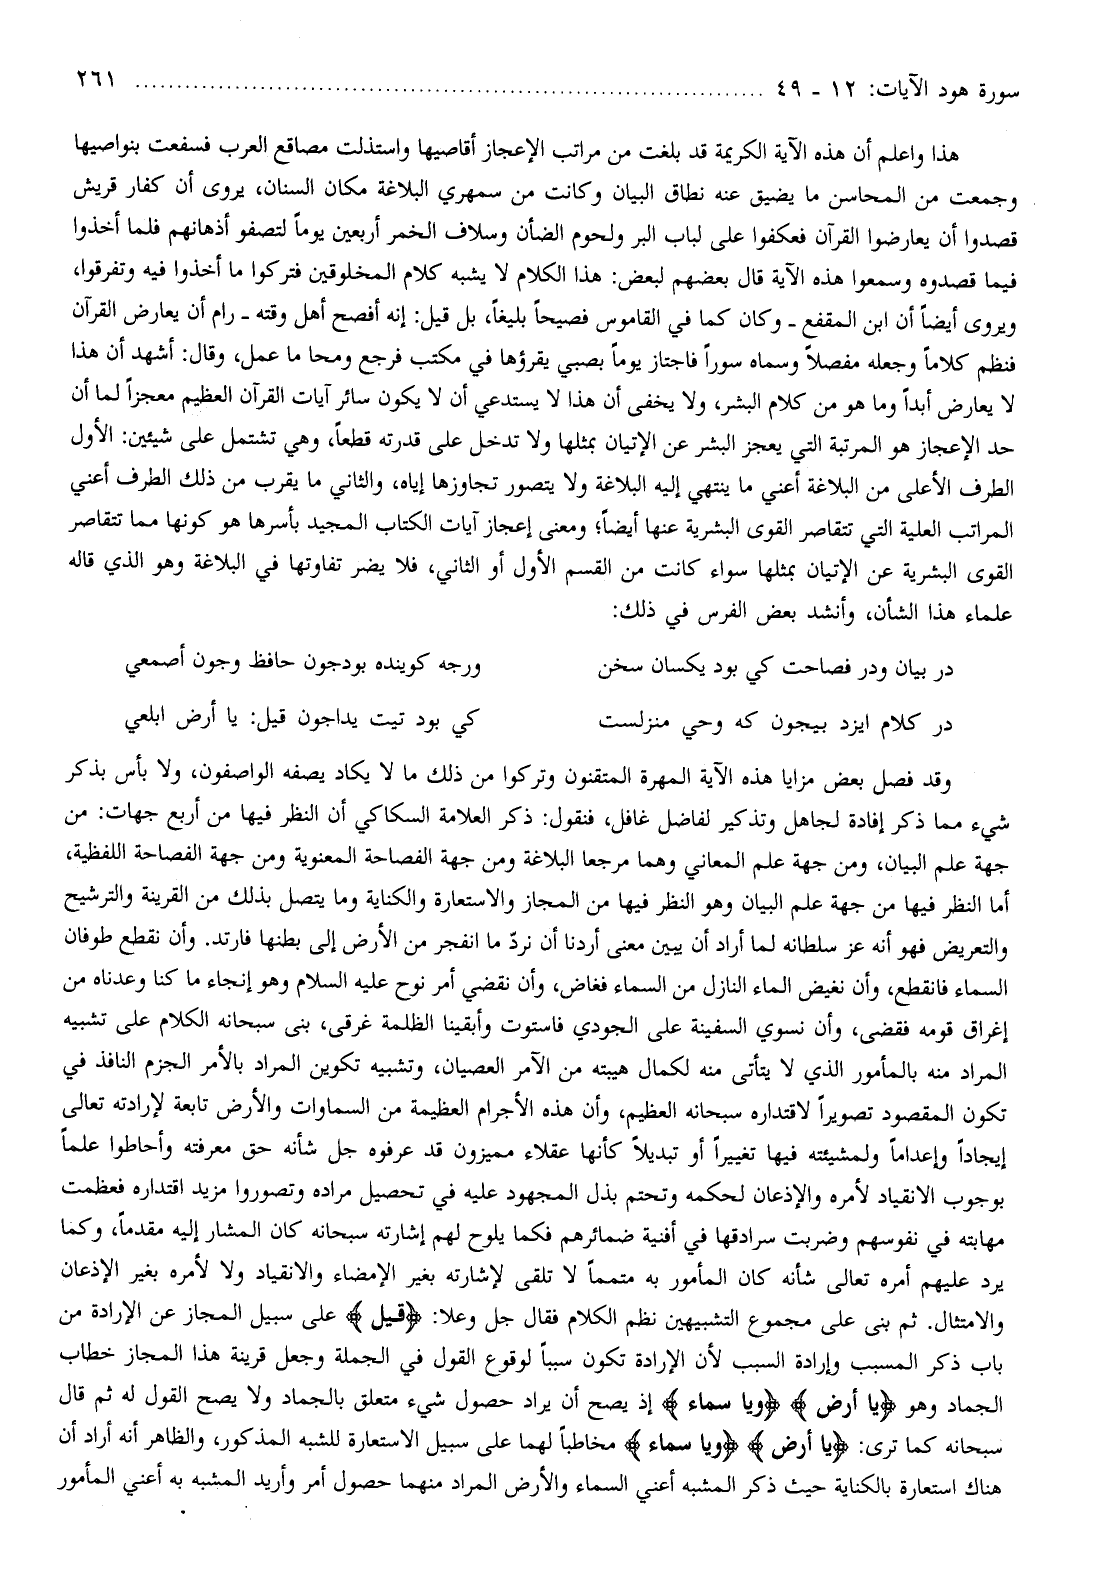 سورة هود الآيات: ١٢ ـ ٤٩ ........................................................................... ٢٦١
هذا واعلم أن هذه الآية الكريمة قد بلغت من مراتب الإعجاز أقاصيها واستذلت مصاقع العرب فسفعت بنواصيها
وجمعت من المحاسن ما يضيق عنه نطاق البيان وكانت من سمهري البلاغة مكان السنان، يروى أن كفار قريش
قصدوا أن يعارضوا القرآن فعكفوا على لباب البر ولحوم الضأن وسلاف الخمر أربعين يوماً لتصفو أذهانهم فلما أخذوا
فيما قصدوه وسمعوا هذه الآية قال بعضهم لبعض: هذا الكلام لا يشبه كلام المخلوقين فتركوا ما أخذوا فيه وتفرقوا،
ويروى أيضاً أن ابن المقفع ـ وكان كما في القاموس فصيحاً بليغاً، بل قيل: إنه أفصح أهل وقته ـ رام أن يعارض القرآن
فنظم كلاماً وجعله مفصلاً وسماه سوراً فاجتاز يوماً بصبي يقرؤها في مكتب فرجع ومحا ما عمل، وقال: أشهد أن هذا
لا يعارض أبداً وما هو من كلام البشر، ولا يخفى أن هذا لا يستدعي أن لا يكون سائر آيات القرآن العظيم معجزاً لما أن
حد الإعجاز هو المرتبة التي يعجز البشر عن الإتيان بمثلها ولا تدخل على قدرته قطعاً، وهي تشتمل على شيئين: الأول
الطرف الأعلى من البلاغة أعني ما ينتهي إليه البلاغة ولا يتصور تجاوزها إياه، والثاني ما يقرب من ذلك الطرف أعني
المراتب العلية التي تتقاصر القوى البشرية عنها أيضاً؛ ومعنى إعجاز آيات الكتاب المجيد بأسرها هو كونها مما تتقاصر
القوى البشرية عن الإتيان بمثلها سواء كانت من القسم الأول أو الثاني، فلا يضر تفاوتها في البلاغة وهو الذي قاله
علماء هذا الشأن، وأنشد بعض الفرس في ذلك:
در بيان ودر فصاحت كي بود يكسان سخن ورجه كوينده بودجون حافظ وجون أصمعي
در كلام ايزد بيجون كه وحي منزلست كي بود تيت يداجون قيل: يا أرض ابلعي
وقد فصل بعض مزايا هذه الآية المهرة المتقنون وتركوا من ذلك ما لا يكاد يصفه الواصفون، ولا بأس بذكر
شيء مما ذكر إفادة لجاهل وتذكير لفاضل غافل، فنقول: ذكر العلامة السكاكي أن النظر فيها من أربع جهات: من
جهة علم البيان، ومن جهة علم المعاني وهما مرجعا البلاغة ومن جهة الفصاحة المعنوية ومن جهة الفصاحة اللفظية،
أما النظر فيها من جهة علم البيان وهو النظر فيها من المجاز والاستعارة والكناية وما يتصل بذلك من القرينة والترشيح
والتعريض فهو أنه عز سلطانه لما أراد أن يبين معنى أردنا أن نردّ ما انفجر من الأرض إلى بطنها فارتد. وأن نقطع طوفان
السماء فانقطع، وأن نغيض الماء النازل من السماء فغاض، وأن نقضي أمر نوح عليه السلام وهو إنجاء ما كنا وعدناه من
إغراق قومه فقضى، وأن نسوي السفينة على الجودي فاستوت وأبقينا الظلمة غرقى، بنى سبحانه الكلام على تشبيه
المراد منه بالمأمور الذي لا يتأتى منه لكمال هيبته من الآمر العصيان، وتشبيه تكوين المراد بالأمر الجزم النافذ في
تكون المقصود تصويراً لاقتداره سبحانه العظيم، وأن هذه الأجرام العظيمة من السماوات والأرض تابعة لإرادته تعالى
إيجاداً وإعداماً ولمشيئته فيها تغييراً أو تبديلاً كأنها عقلاء مميزون قد عرفوه جل شأنه حق معرفته وأحاطوا علماً
بوجوب الانقياد لأمره والإذعان لحكمه وتحتم بذل المجهود عليه في تحصيل مراده وتصوروا مزيد اقتداره فعظمت
مهابته في نفوسهم وضربت سرادقها في أفنية ضمائرهم فكما يلوح لهم إشارته سبحانه كان المشار إليه مقدماً، وكما
يرد عليهم أمره تعالى شأنه كان المأمور به متمماً لا تلقى لإشارته بغير الإمضاء والانقياد ولا لأمره بغير الإذعان
والامتثال. ثم بنى على مجموع التشبيهين نظم الكلام فقال جل وعلا: ﴿قيل﴾ على سبيل المجاز عن الإرادة من
باب ذكر المسبب وإرادة السبب لأن الإرادة تكون سبباً لوقوع القول في الجملة وجعل قرينة هذا المجاز خطاب
الجماد وهو ﴿يا أرض﴾ ﴿ويا سماء﴾ إذ يصح أن يراد حصول شيء متعلق بالجماد ولا يصح القول له ثم قال
سبحانه كما ترى: ﴿يا أرض﴾ ﴿ويا سماء﴾ مخاطباً لهما على سبيل الاستعارة للشبه المذكور، والظاهر أنه أراد أن
هناك استعارة بالكناية حيث ذكر المشبه أعني السماء والأرض المراد منهما حصول أمر وأريد المشبه به أعني المأمور